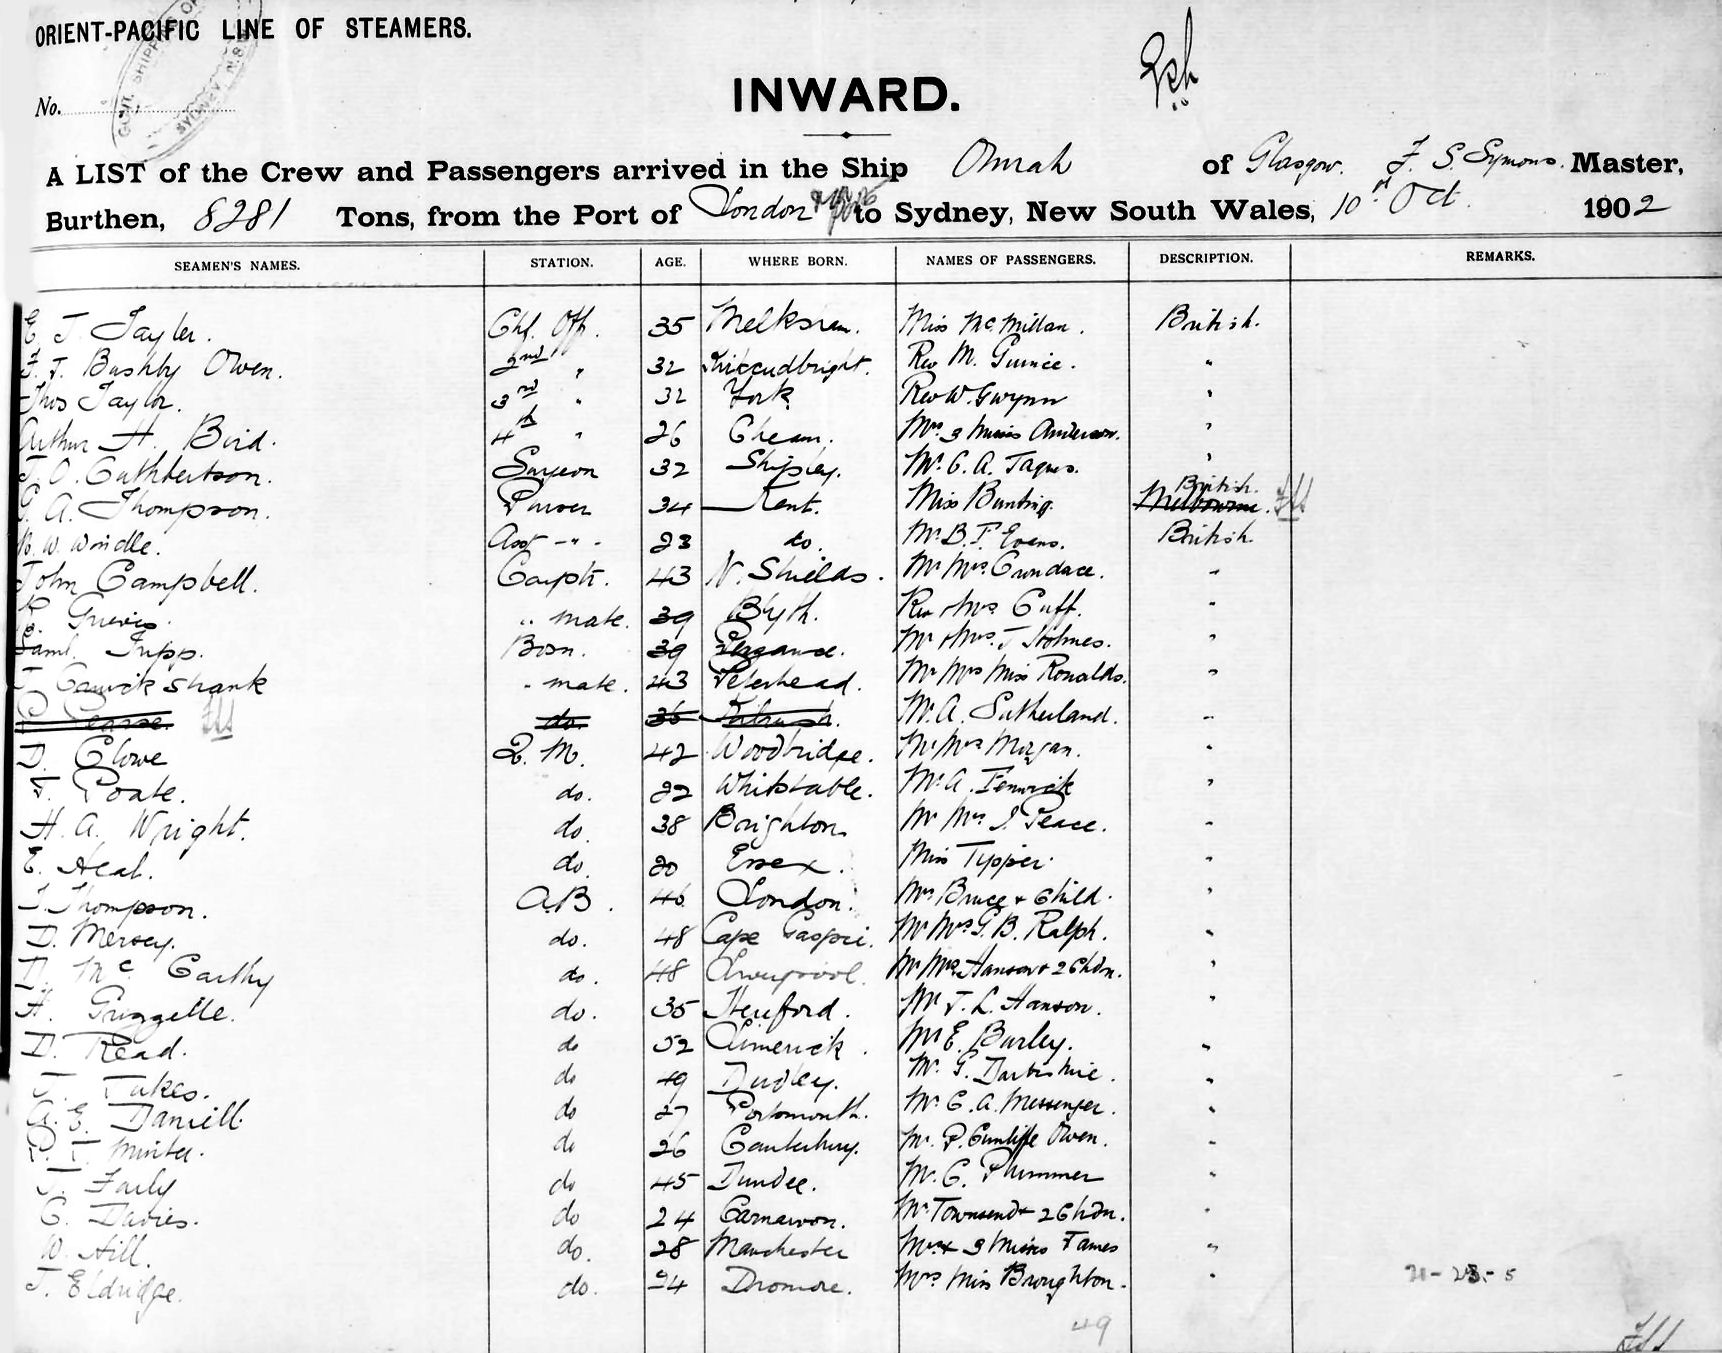 ORIENT-PACIFIC LINE OF STEAMERS.
No.
INWARD.
A LIST of the Crew and Passengers arrived in the Ship Omrah of Glasgow. F. S. Symons. Master,
Burthen, 8281 Tons, from the Port of London to Sydney, New South Wales, 10th Oct. 1902
SEAMEN'S NAMES. STATION. AGE. WHERE BORN. NAMES OF PASSENGERS. DESCRIPTION. REMARKS.
E J Tayler. Chf. Off. 35 Melksham. Miss McMillan. British.
F. J. Bushby Owen. 2nd " 32 Kirkcudbright. Rev M. Guince. "
Thos Taylor. 3rd " 32 York. Rev W. Gwynn "
Arthur H. Bird. 4th " 26 Cheam. Mrs 3 Misses Anderson. "
J. O. Cuthbertson. Surgeon 32 Shipley. Mr C. A. Jaques. "
G. A. Thompson. Purser 34 Kent. Miss Bunting. British. Melbourne.
W. Windle. Asst - " - 23 do. Mr B. F. Evans. British.
John Campbell. Carptr. 43 N. Shields. Mr Mrs Crundace. "
Grieves. " mate. 39 Blyth. Rev & Mrs Cuff. "
Saml. Tupp. Bosn. 39 Penzance. Mr & Mrs J Holmes. "
J Cruickshank " mate. 43 Peterhead. Mr Mrs Miss Ronalds. "
Pearse. do. 36 Kilrush. Mr A. Sutherland. "
D. Clowe Q. M. 42 Woodbridge. Mr Mrs Morgan. "
F. Poate. do. 22 Whitstable. Mr A. Fenwick "
H. A. Wright. do. 38 Brighton. Mr Mrs J. Peace. "
E. Heal. do. 20 Essex. Miss Tipper. "
J. Thompson. A.B. 46 London. Mrs Bruce & Child. "
D. Mersey. do. 48 Cape Gaspie. Mr Mrs G. B. Ralph. "
D. McCarthy do. 48 Liverpool. Mr Mrs Hanson & 2 Chdn. "
H. Griggelle. do. 35 Hereford. Mr J. L. Hanson. "
D. Read. do 52 Limerick. Mr E. Burley. "
J. Jukes. do 49 Dudley. Mr G. Darbishire. "
A. E. Daniell. do 27 Portsmouth. Mr C. A. Messenger. "
P. T. Minter. do 26 Canterbury. Mr P. Cunliffe Owen. "
J. Fairly do 45 Dundee. Mr C. Plummer "
C. Davies. do 24 Carnarvon. Mr Townsend & 2 Chdn. "
W. Hill. do. 28 Manchester Mrs & 3 Misses James "
J. Eldridge. do. 24 Dromore. Mrs Miss Broughton. "
49